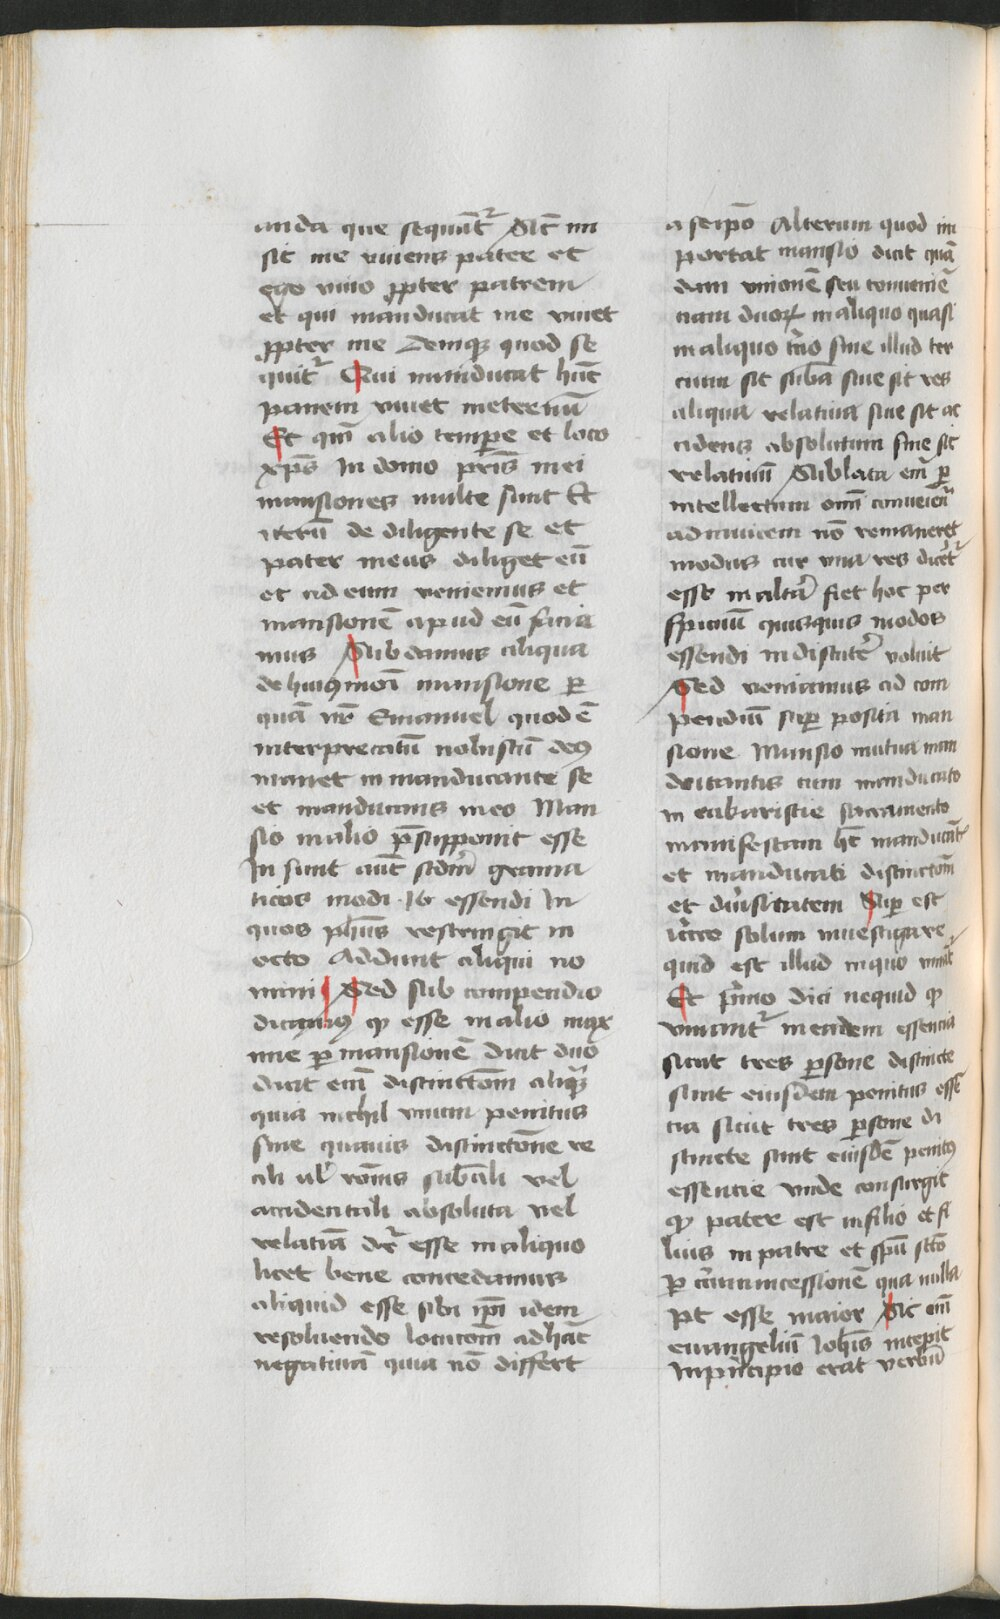 anda que sequūt᷑ Sic̄ mi
sit me viuens pater et
ego viuo ꝓpter patrem
et qui manducat me viuet
ꝓpter me Deniqꝫ quod se
quit᷑ Qui manducat hūc
panem viuet ineternū
Et qm̄ alio tempere et loco
xp̄s In domo pr̄is mei
mansiones multe sunt Et
iterū de diligente se et
pater meus diliget eū
et ad eum veniemus et
mansionē apud eū facia
mus Subdamus aliqua
de huiꝰmōi mansione ꝑ
quā nr̄ Emanuel quod ē
interpretatū nobiscū deꝰ
manet in manducante se
et manducans in eo Man
sio in alio p̄supponit esse
In sunt aut̄ scdm̄ grama
ticos modi 16 essendi In
quos ph̄us restringit in
octo Addunt aliqui no
num Sed sub compendio
dicamꝰ ꝙ esse in alio max
ime ꝑ mansionē dicit duo
dicit em̄ distinctōem aliquā
quia nichil vnum penitus
sine quauis distinctōne re
ali ul̄ rōnis sub̄ali vel
accidentali absoluta vel
relatīa dr̄ esse in aliquo
licet bene concedamus
aliquid esse sibi ip̄i idem
resoluendo locutōem ad hāc
negatiuā quia nō differt
a seip̄o Alterum quod im
portat mansio dicit quā
dam vnionē seu conueniē
ciam duoꝝ in aliquo quasi
in aliquo t̄cio siue illud ter
cium sit sub̄a siue sit res
aliqua relatiua siue sit ac
cidens absolutum siue sit
relatiuū Sublata em̄ ꝑ
intellectum om̄i conueien̄
adinuicem nō remaneret
modus cur vna res dicet᷑
esse in altā fiet hoc per
spicuū quisquis modos
essendi in discutē voluit
Sed veniamus ad com
pendiū suꝑ posita man
sione Mansio mutua man
ducantis cum manducato
in eukaristie sacramento
manifestam hꝫ manducātꝭ
et manducati distinctōem
et diuersitatem Suꝑ est
it̄cto solum inuestigare
quid est illud in quo vniūt᷑
Et p̄mo dici nequid ꝙ
vniunt᷑ in eadem essencia
sicut tres ꝑsone distincte
sunt eiusdem penitus essē
cia sicut tres ꝑsone di
stincte sunt eiusdē penitꝰ
essencie vnde consurgit
ꝙ pater est in filio et fi
lius in patre et sp̄u sctō
ꝑ circumincessionē qua nulla
pt̄ esse maior Sic em̄
euangeliū Ioh̄is incepit
In principio erat verbū